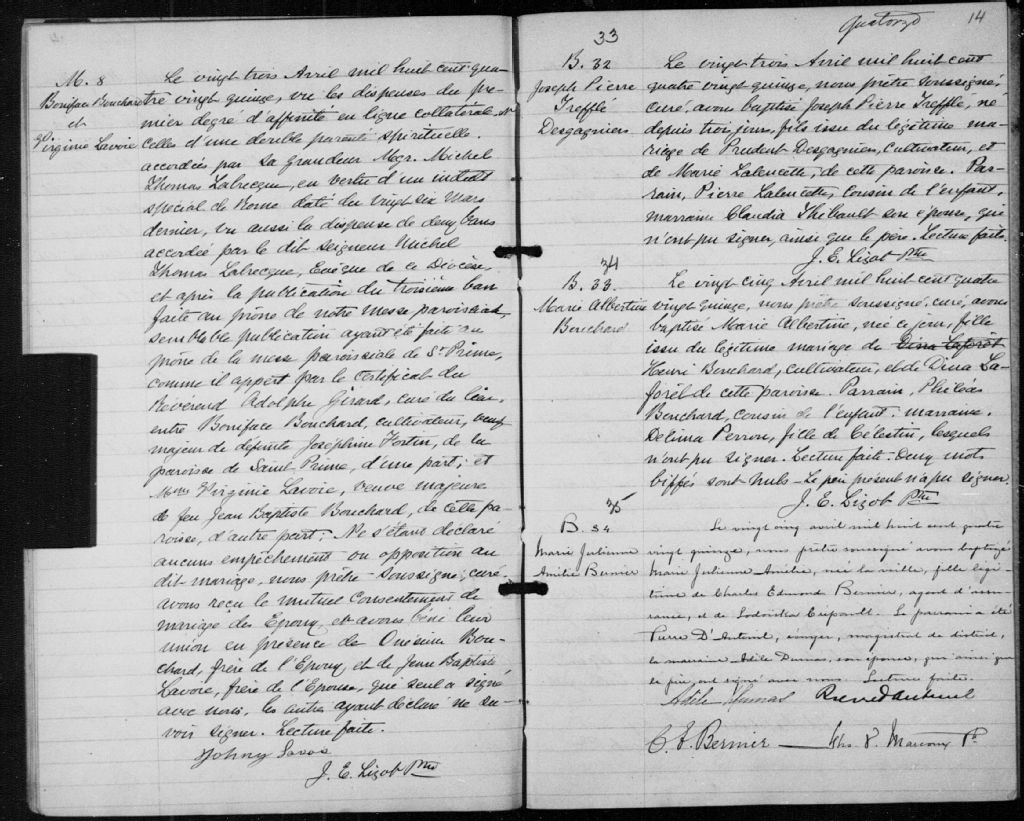 M. 8
Boniface Bouchard
et
Virginie Lavoie
Le vingt trois Avril mil huit cent qua-
tre vingt quinze, vu les dispenses du pre-
mier degré d'affinité en ligne collatérale, et
celles d'une double parenté spirituelle.
accordées par Sa grandeur Mgr. Michel
Thomas Labrecque, en vertu d'un indult
spécial de Rome daté du vingt six Mars
dernier, vu aussi la dispense de deux bans
accordée par le dit Seigneur Michel
Thomas Labrecque, Evêque de ce Diocèse,
et après la publication du troisième ban
faite au prône de notre messe paroissiale,
semblable publication ayant été faite au
prône de la messe paroissiale de St Prime,
comme il appert par le certificat du
Révérend Adolphe Girard, curé du lieu,
entre Boniface Bouchard, cultivateur, veuf
majeur de défunte Joséphine Fortin, de la
paroisse de Saint Prime, d'une part; et
Virginie Lavoie, veuve majeure
de feu Jean Baptiste Bouchard, de cette pa-
roisse, d'autre part; Ne s'étant déclaré
aucun empêchement ou opposition au
dit mariage, nous prêtre-soussigné, curé,
avons reçu le mutuel consentement de
mariage des Epoux, et avons béni leur
union en présence de Onésime Bou-
chard, frère de l'Epoux, et de Jean Baptiste
Lavoie, frère de l'Epouse, qui seul a signé
avec nous, les autres ayant déclaré ne sa-
voir signer. Lecture faite.
Johny
J. E. Lizot Ptre
Quatorze
14
33
B. 32
Joseph Pierre
Trefflé
Desgagniers
Le vingt trois Avril mil huit cent
quatre vingt quinze, nous prêtre soussigné,
curé, avons baptisé Joseph Pierre Treffle, né
depuis trois jours, fils issu du légitime ma-
riage de Prudent Desgagniers, cultivateur, et
de Marie Lalencette, de cette paroisse. Par-
rain, Pierre Lalencette, cousin de l'enfant,
marraine Claudia Thibault son épouse, qui
n'ont pu signer, ainsi que le père. Lecture faite.
J. E. Lizot Ptre
34
B. 33.
Marie Albertine
Bouchard
Le vingt cinq Avril mil huit cent quatre
vingt quinze, nous prêtre soussigné, curé, avons
baptisé Marie Albertine, née ce jour, fille
issue du légitime mariage de Dina Laforêt
Henri Bouchard, cultivateur, et de Dina La-
forêt de cette paroisse. Parrain, Philéas
Bouchard, cousin de l'enfant; marraine,
Délima Perron, fille de Célestin, lesquels
n'ont pu signer. Lecture faite. Deux mots
biffés sont nuls - Le père présent n'a pu signer.
J. E. Lizot Ptre
35
B. 34
Marie Julienne
Amélie Bernier
Le vingt cinq avril mil huit cent quatre
vingt quinze, nous prêtre soussigné avons baptisé
Marie Julienne Amélie, née la veille, fille légi-
time de Charles Edmond Bernier, agent d'assu-
rance, et de Lodoïska . Le parrain a été
Pierre D'Auteuil, , magistrat de district,
la marraine Adèle Dumas, son épouse, qui ainsi que
le père, ont signé avec nous. Lecture faite.
Adèle Dumas Pierre d'auteuil
C. E. Bernier Chs. Ptre